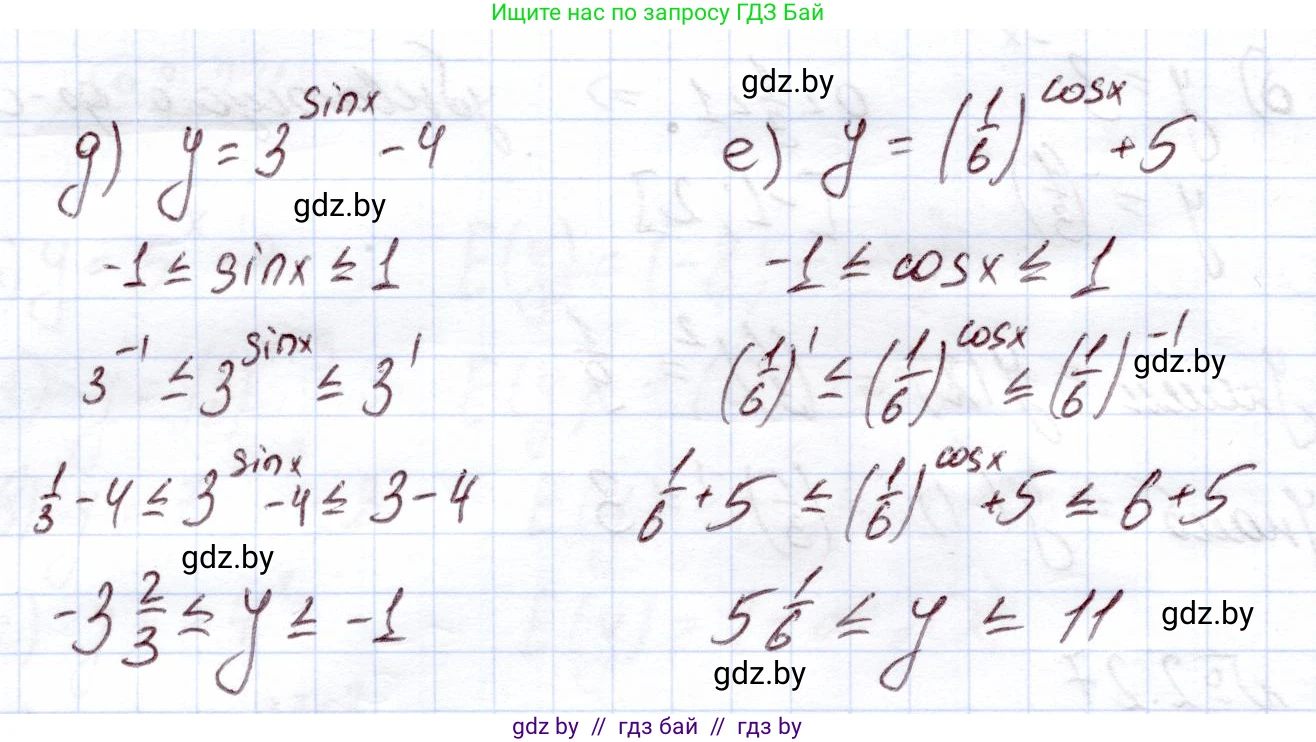 Ищите нас по запросу ГДЗ Бай
д) y = 3^{sinx} - 4
gdz.by
-1 ≤ sinx ≤ 1
3^{-1} ≤ 3^{sinx} ≤ 3^{1}
1/3 - 4 ≤ 3^{sinx} - 4 ≤ 3 - 4
gdz.by
-3 2/3 ≤ y ≤ -1
gdz.by
е) y = (1/6)^{cosx} + 5
-1 ≤ cosx ≤ 1
(1/6)^{1} ≤ (1/6)^{cosx} ≤ (1/6)^{-1}
gdz.by
1/6 + 5 ≤ (1/6)^{cosx} + 5 ≤ 6 + 5
5 1/6 ≤ y ≤ 11
gdz.by
gdz.by
gdz.by // гдз бай // гдз by